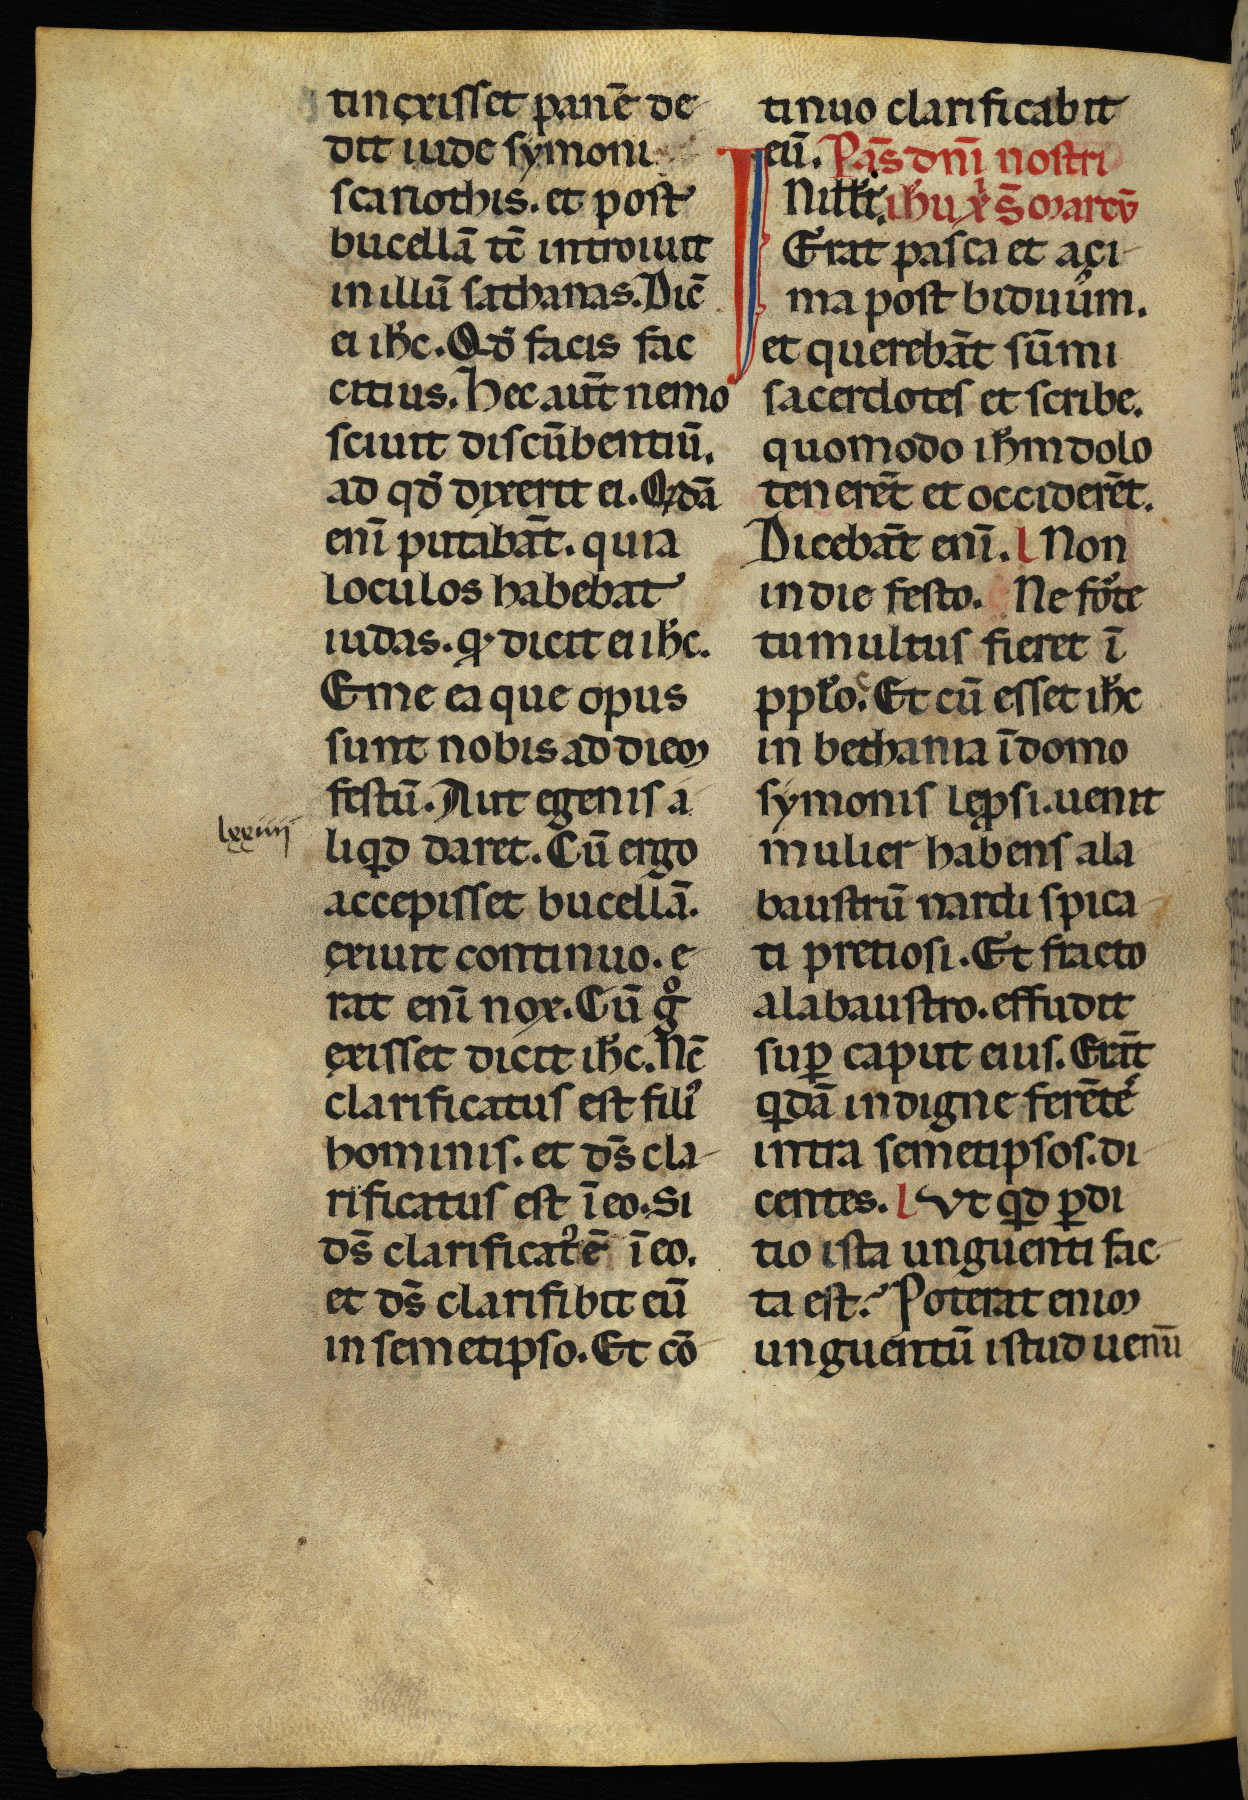 tinxisset panē de
dit iude symoni
scariothis. et post
bucellā tē introiuit
in illū sathanas. Dic̄
ei ih̄c. Qd̄ facis fac
citius. Hec aut̄ nemo
sciuit discūbentiū.
ad qd̄ dixerit ei. Qdā
enī putabāt. quia
loculos habebat
iudas. q dicit ei ih̄c.
Eme ea que opus
sunt nobis ad diem
festū. Aut egenis a
lxxiiii
liqd daret. Cū ergo
accepisset bucellā.
exiuit continuo. e
rat enī nox. Cū gͦ
exisset dicit ih̄c. Nc̄
clarificatus est fili᾽
hominis. et ds̄ cla
rificatus est ī eo. Si
ds̄ clarificat᾽ ē ī eo.
et ds̄ clarifibit eū
in semetipso. Et cō
tinuo clarificabit
eū. Pas̄ dn̄i nostri
N ill̄ t̄. ih̄u xͥ s̄ marcū
Erat pasca et aci
ma post biduum.
et querebāt sūmi
sacerdotes et scribe.
quomodo ih̄m dolo
tenerēt et occiderēt.
Dicebāt enī. l Non
in die festo. Ne forte
tumultus fieret ī
ppl̄o. Et cū esset ih̄c
in bethania ī domo
symonis lepsi. uenit
mulier habens ala
baustrū nardi spica
ti pretiosi. Et fracto
alabaustro. effudit
sup caput eius. Erāt
qdā indigne ferētes
intra semetipsos. di
centes. l Vt qd pdi
tio ista unguenti fac
ta est? Poterat enim
unguentū istud uenū